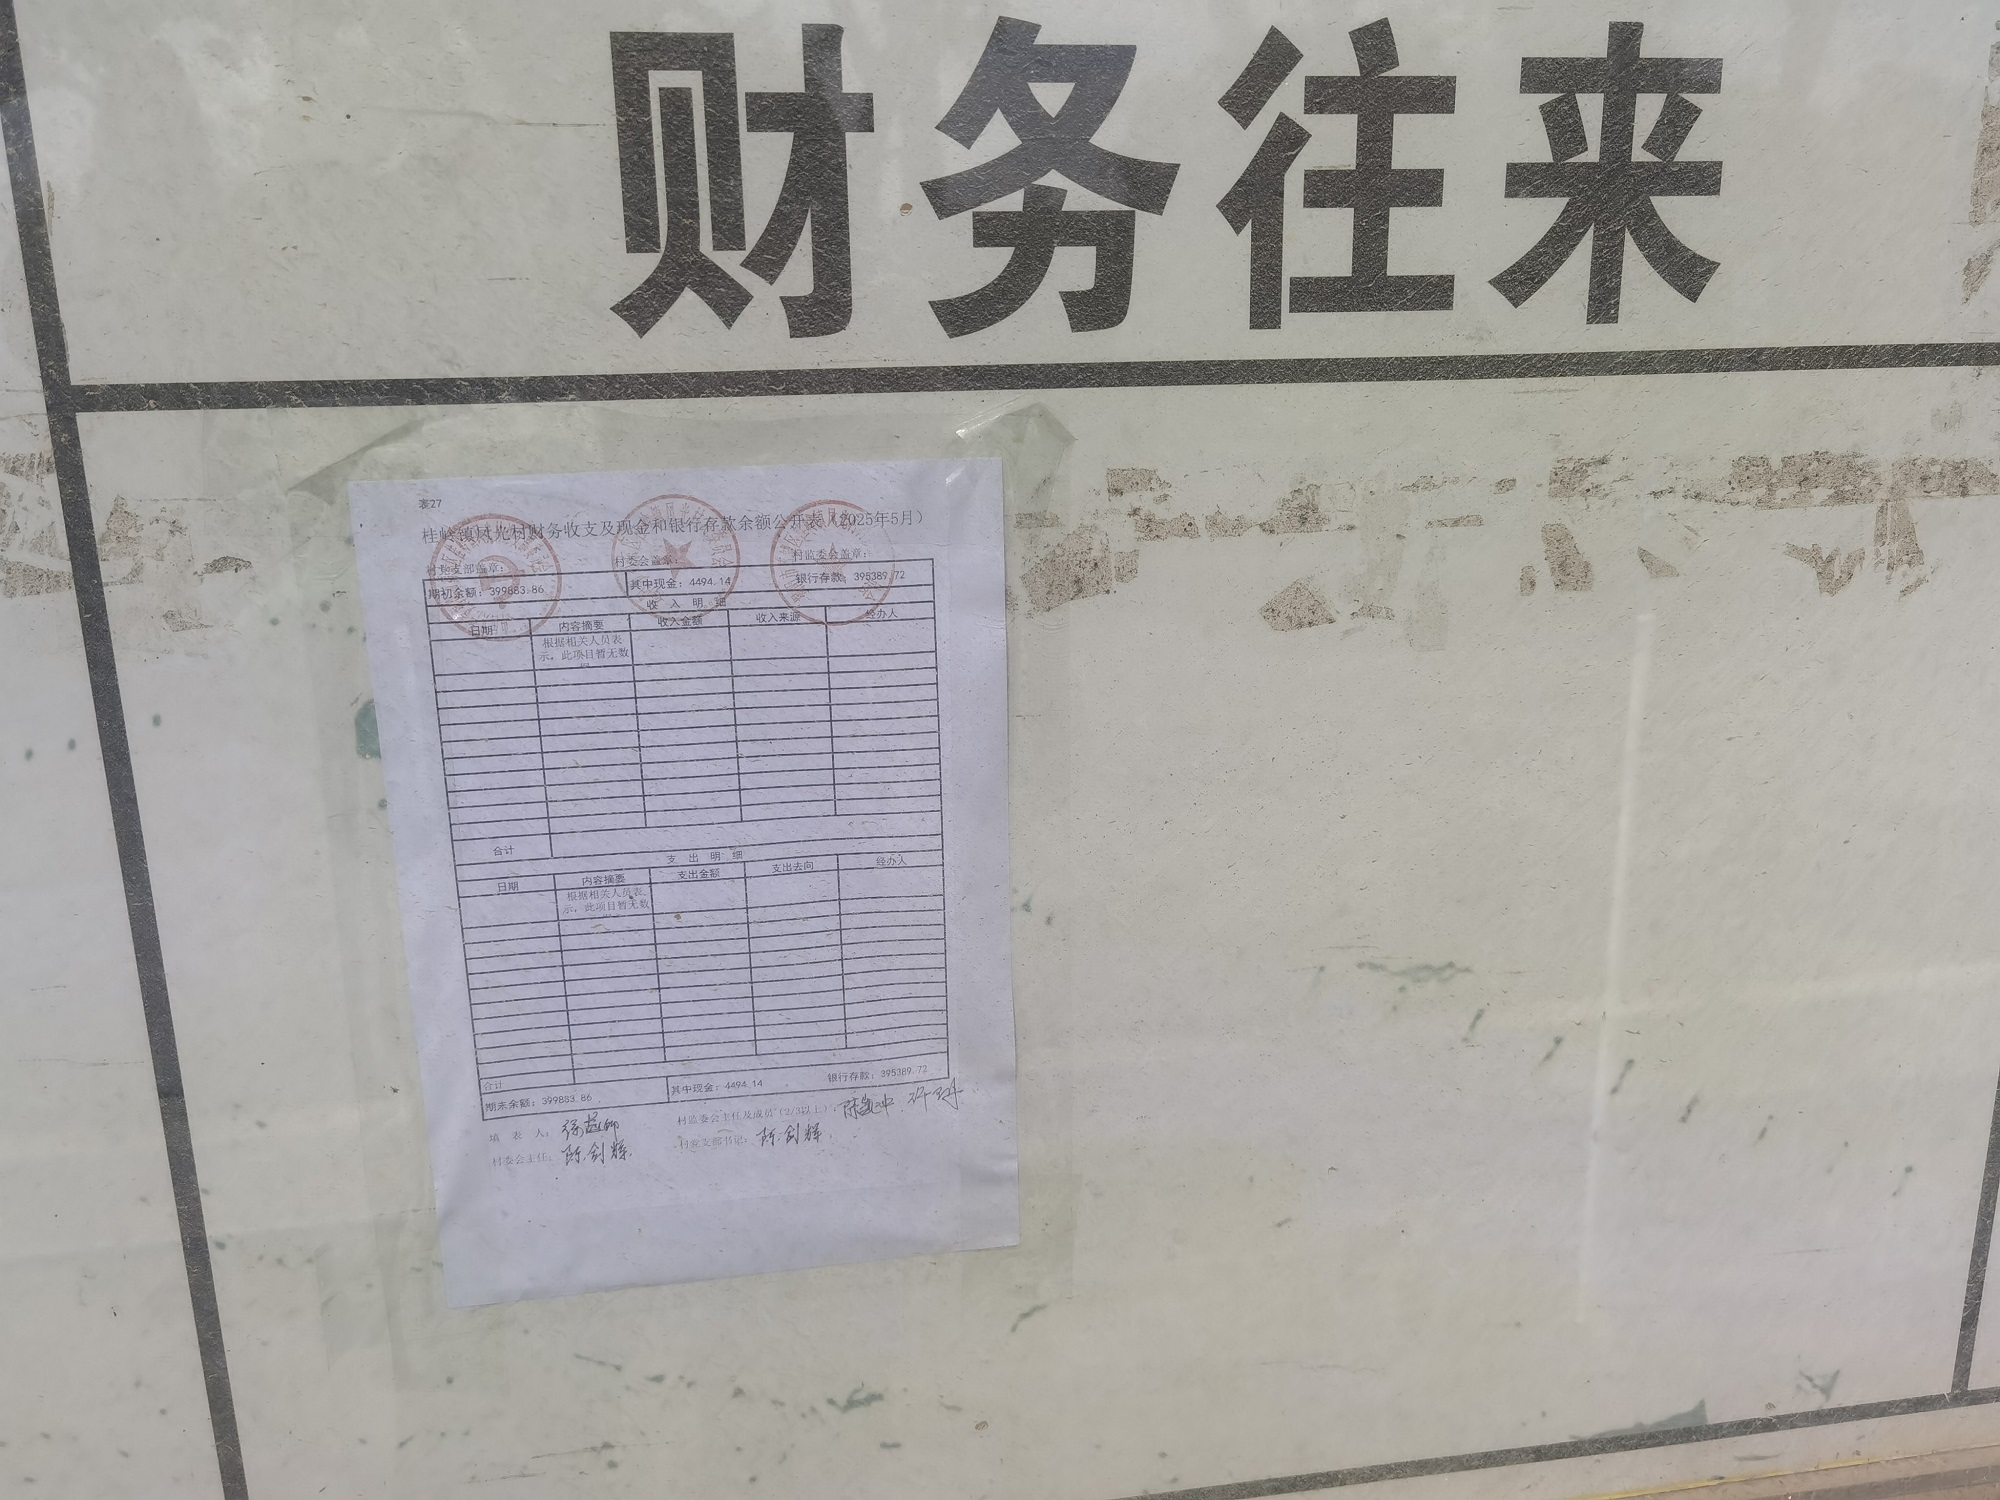 财务往来
表27
桂岭镇风光村财务收支及现金和银行存款余额公开表（2025年5月）
村党支部盖章： 村委会盖章： 村监委会盖章：
期初余额：399883.86 其中现金：4494.14 银行存款：395389.72
收 入 明 细
日期 内容摘要 收入金额 收入来源 经办人
根据相关人员表
示，此项目暂无数
合计
支 出 明 细
日期 内容摘要 支出金额 支出去向 经办人
根据相关人员表
示，此项目暂无数
合计
期末余额：399883.86 其中现金：4494.14 银行存款：395389.72
填 表 人： 村监委会主任及成员（2/3以上）：
村委会主任：陈剑辉 村党支部书记：陈剑辉